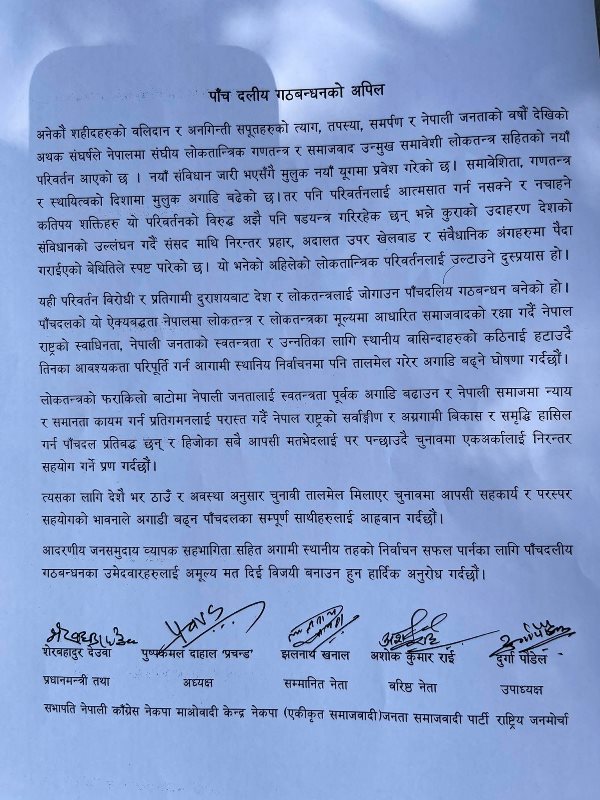 पाँच दलीय गठबन्धनको अपिल
अनेकौ शहीदहरुको वलिदान र अनगिन्ती सपूतहरुको त्याग, तपस्या, समर्पण र नेपाली जनताको वर्षौं देखिको
अथक संघर्षले नेपालमा संघीय लोकतान्त्रिक गणतन्त्र र समाजवाद उन्मुख समावेशी लोकतन्त्र सहितको नयाँ
परिवर्तन आएको छ । नयाँ संविधान जारी भएसँगै मुलुक नयाँ यूगमा प्रवेश गरेको छ। समावेशिता, गणतन्त्र
र स्थायित्वको दिशामा मुलुक अगाडि बढेको छ।तर पनि परिवर्तनलाई आत्मसात गर्न नसक्ने र नचाहने
कतिपय शक्तिहरु यो परिवर्तनको विरुद्ध अझै पनि षडयन्त्र गरिरहेक छन् भन्ने कुराको उदाहरण देशको
संविधानको उल्लंघन गर्दै संसद माथि निरन्तर प्रहार, अदालत उपर खेलवाड र संवैधानिक अंगहरुमा पैदा
गराईएको बेथितिले स्पष्ट पारेको छ। यो भनेको अहिलेको लोकतान्त्रिक परिवर्तनलाई उल्टाउने दुस्प्रयास हो।
यही परिवर्तन बिरोधी र प्रतिगामी दुराशयबाट देश र लोकतन्त्रलाई जोगाउन पाँचदलिय गठबन्धन बनेको हो।
पाँचदलको यो ऐक्यबद्धता नेपालमा लोकतन्त्र र लोकतन्त्रका मूल्यमा आधारित समाजवादको रक्षा गर्दै नेपाल
राष्ट्रको स्वाधिनता, नेपाली जनताको स्वतन्त्रता र उन्नतिका लागि स्थानीय बासिन्दाहरुको कठिनाई हटाउदै
तिनका आवश्यकता परिपूर्ति गर्न आगामी स्थानिय निर्वाचनमा पनि तालमेल गरेर अगाडि बढ्ने घोषणा गर्दछौं।
लोकतन्त्रको फराकिलो बाटोमा नेपाली जनतालाई स्वतन्त्रता पूर्वक अगाडी बढाउन र नेपाली समाजमा न्याय
र समानता कायम गर्न प्रतिगमनलाई परास्त गर्दै नेपाल राष्ट्रको सर्वाङ्गीण र अग्रगामी बिकास र समृद्धि हासिल
गर्न पाँचदल प्रतिबद्ध छन् र हिजोका सबै आपसी मतभेदलाई पर पन्छाउदै चुनावमा एकअर्कालाई निरन्तर
सहयोग गर्ने प्रण गर्दछौं।
त्यसका लागि देशै भर ठाउँ र अवस्था अनुसार चुनावी तालमेल मिलाएर चुनावमा आपसी सहकार्य र परस्पर
सहयोगको भावनाले अगाडी बढ्न पाँचदलका सम्पूर्ण साथीहरुलाई आह्रवान गर्दछौं।
आदरणीय जनसमुदाय व्यापक सहभागिता सहित अगामी स्थानीय तहको निर्वाचन सफल पार्नका लागि पाँचदलीय
गठबन्धनका उमेदवारहरुलाई अमूल्य मत दिई विजयी बनाउन हुन हार्दिक अनुरोध गर्दछौं।
शेरबहादुर देउवा पुष्पकमल दाहाल 'प्रचन्ड' झलनाथ खनाल अशोक कुमार राई दुर्गा पौडेल
प्रधानमन्त्री तथा अध्यक्ष सम्मानित नेता वरिष्ठ नेता उपाध्यक्ष
सभापति नेपाली काँग्रेस नेकपा माओवादी केन्द्र नेकपा (एकीकृत समाजवादी)जनता समाजवादी पार्टी राष्ट्रिय जनमोर्चा